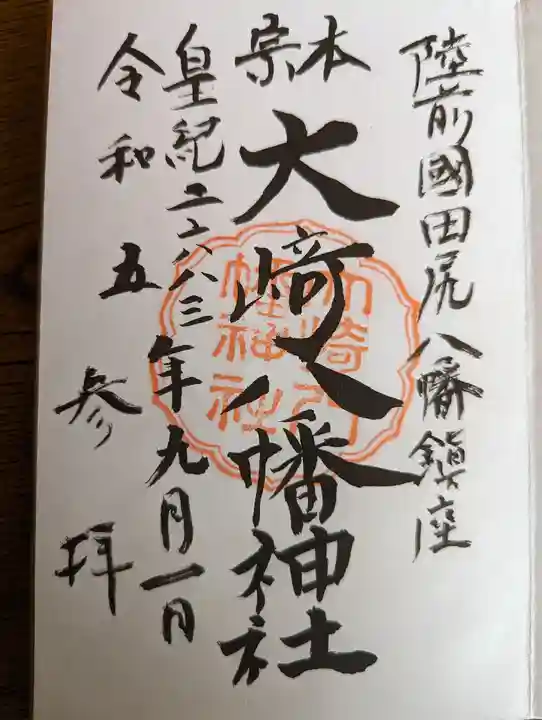 陸前國田尻八幡鎮座
本宗
大崎八幡神社
皇紀二六八三年九月一日
令和五
参拝
大崎八幡神社